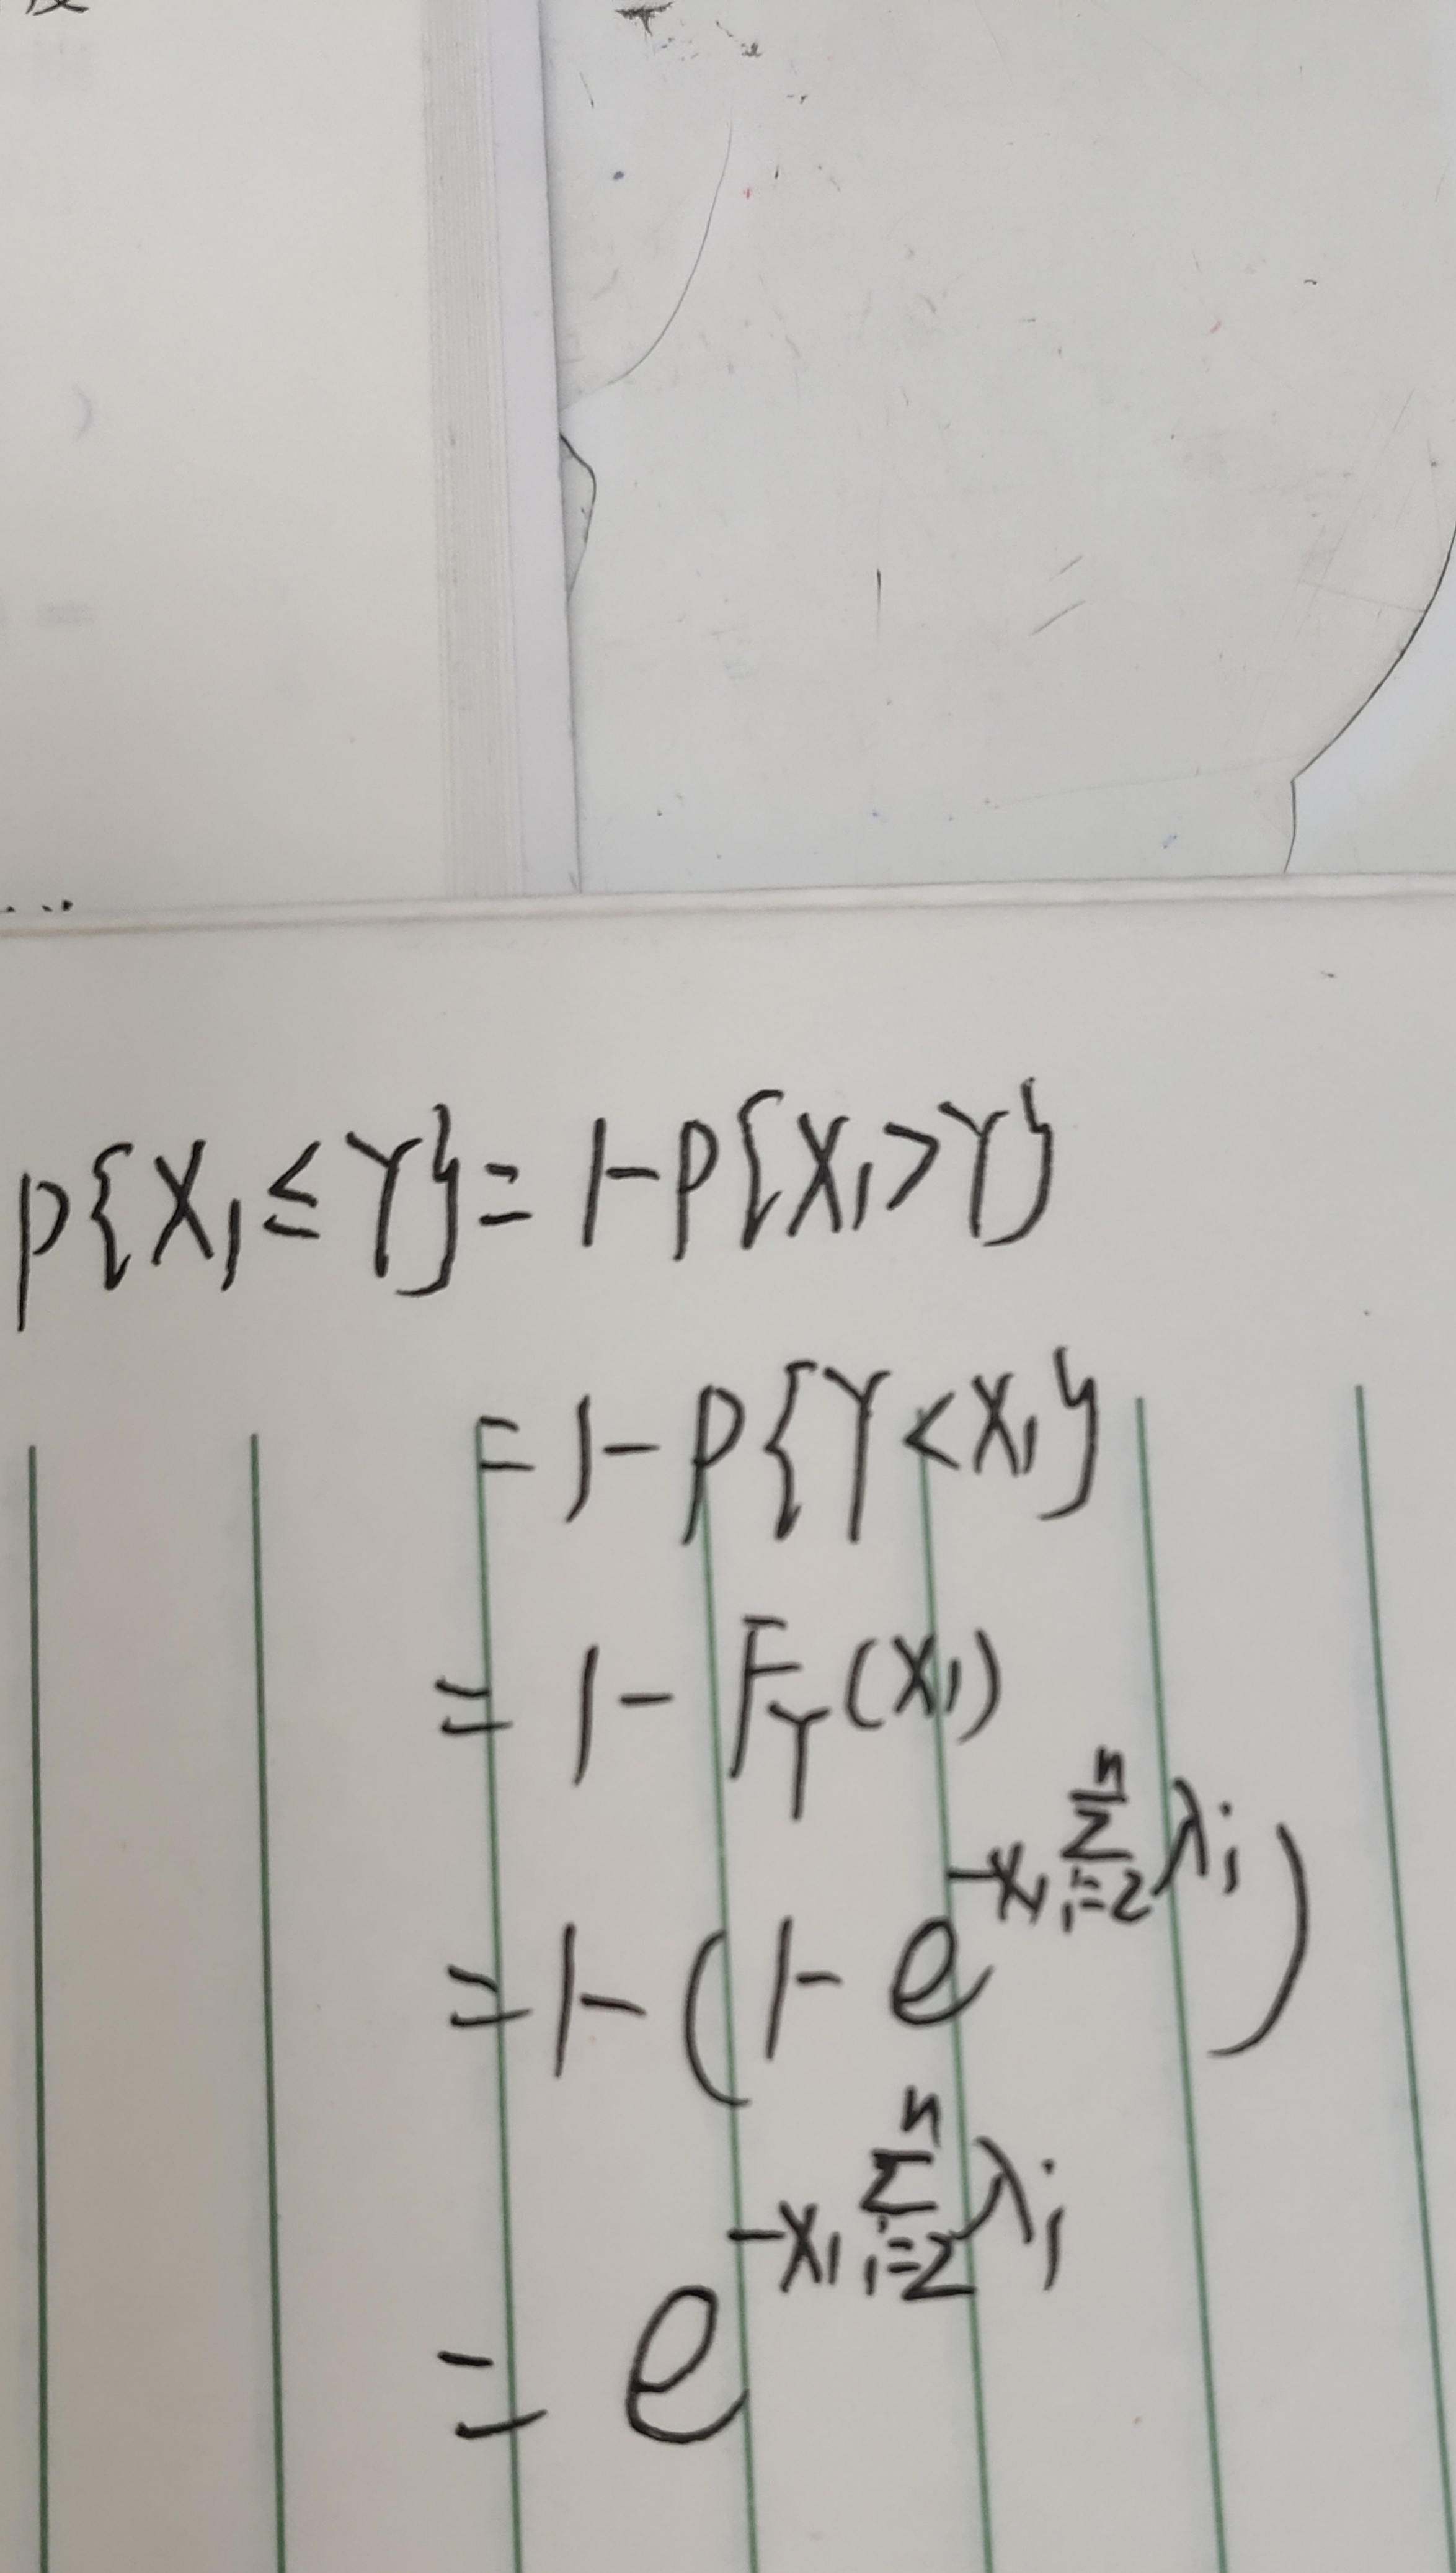 P{X₁≤Y}=1-P{X₁>Y}
=1-P{Y<X₁}
=1-F_Y(X₁)
=1-(1-e^{-X₁∑_{i=2}^{n}λᵢ})
=e^{-X₁∑_{i=2}^{n}λᵢ}